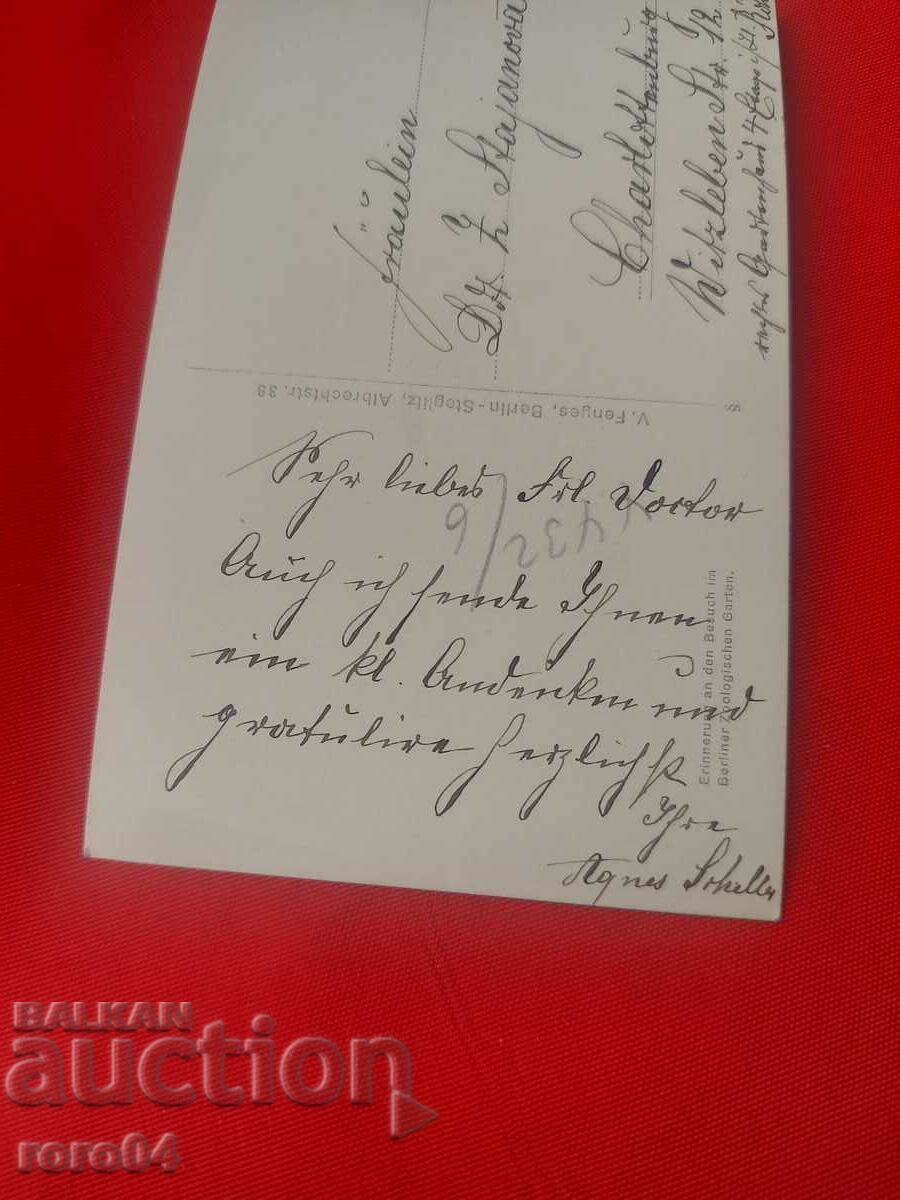 Fräulein
Dr. Z Stajanova
Charlottenburg
Witzleben Str. 12
rechtes Gartenhaus
V. Fenges, Berlin-Steglitz, Albrechtstr. 38
Sehr liebes Frl. Doctor
Auch ich sende Ihnen
ein kl. Andenken und
gratulire herzlichst
Ihre
Agnes
432
6
Erinnerung an den Besuch im
Berliner Zoologischen Garten.
BALKAN
auction
roro04